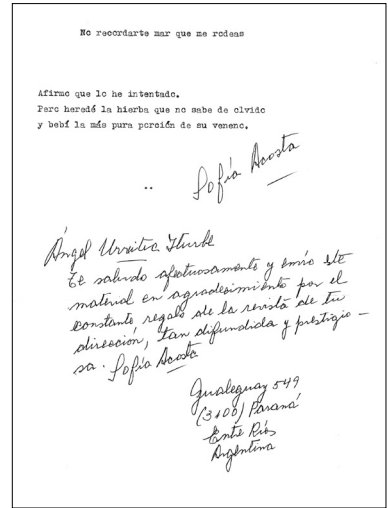 No recordarte mar que me rodeas
Afirmo que lo he intentado.
Pero heredé la hierba que no sabe de olvido
y bebí la más pura porción de su veneno.
Sofía Acosta
..
Ángel Urrutia Iturbe
Te saludo afectuosamente y envío este
material en agradecimiento por el
constante, regalo de la revista de tu
dirección, tan difundida y prestigio-
sa. Sofía Acosta
Gualeguay 549
(3100) Paraná
Entre Ríos
Argentina